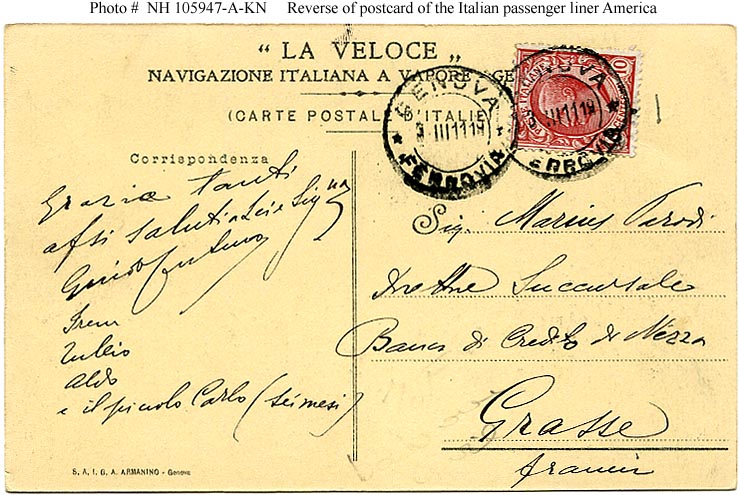 Photo # NH 105947-A-KN Reverse of postcard of the Italian passenger liner America
" LA VELOCE "
NAVIGAZIONE ITALIANA A VAPORE - GE
(CARTE POSTALE D'ITALIE
GENOVA
III 11 19
FERROVIA
Corrispondenza
Grazie tanti
affi saluti a Lei e Sigra
Guido
Irem
Aldo
e il piccolo Carlo (sei mesi)
Sig. Marius Parodi
Succursale
Banca di Credito di Nizza
Grasse
S. A. I. G. A. ARMANINO - Genova